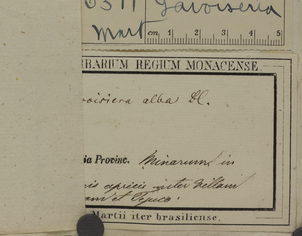 Lavoisiera
Mart
cm 1 2 3 4 5
RBARIUM REGIUM MONACENSE.
voisiera alba DC.
ia Provinc. Minarum in
apricis inter Villam
et Tejuco
Martii iter brasiliense.